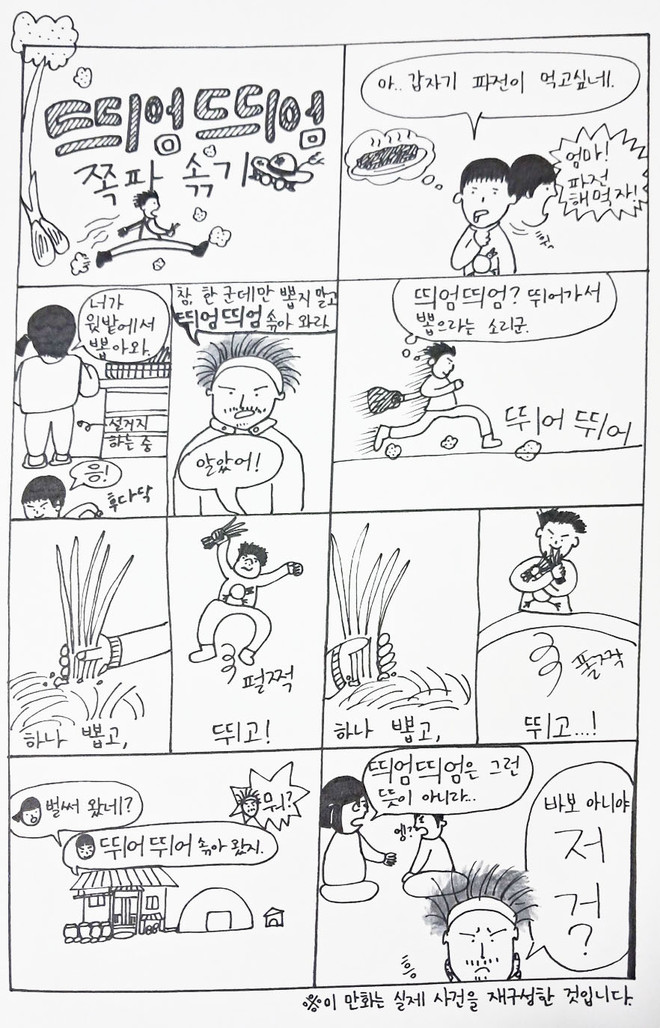 뜨띄엄 뜨띄엄
쪽파 솎기
아.. 갑자기 파전이 먹고싶네.
엄마!
파전
해먹자!
너가
윗밭에서
뽑아와.
설거지
하는 중
응!
후다닥
참, 한 군데만 뽑지 말고
뛰엄뛰엄 솎아 와라.
알았어!
뛰엄뛰엄? 뛰어가서
뽑으라는 소리군.
뛰어 뛰어
하나 뽑고,
펄쩍
뛰고!
하나 뽑고,
폴짝
뛰고...!
벌써 왔네?
뭐?
뛰어 뛰어 솎아 왔지.
뛰엄뛰엄은 그런
뜻이 아니라..
엥?
바보 아니야
저
거?
※이 만화는 실제 사건을 재구성한 것입니다.